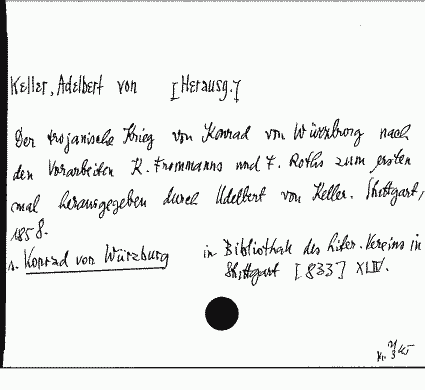 Keller, Adelbert von [Herausg.]
Der trojanische Krieg von Konrad von Würzburg nach
den Vorarbeiten K. Frommanns und F. Roths zum ersten
mal herausgegeben durch Adelbert von Keller. Stuttgart,
1858.
s. Konrad von Würzburg in Bibliothek des liter. Vereins in
Stuttgart [833] XLIV.